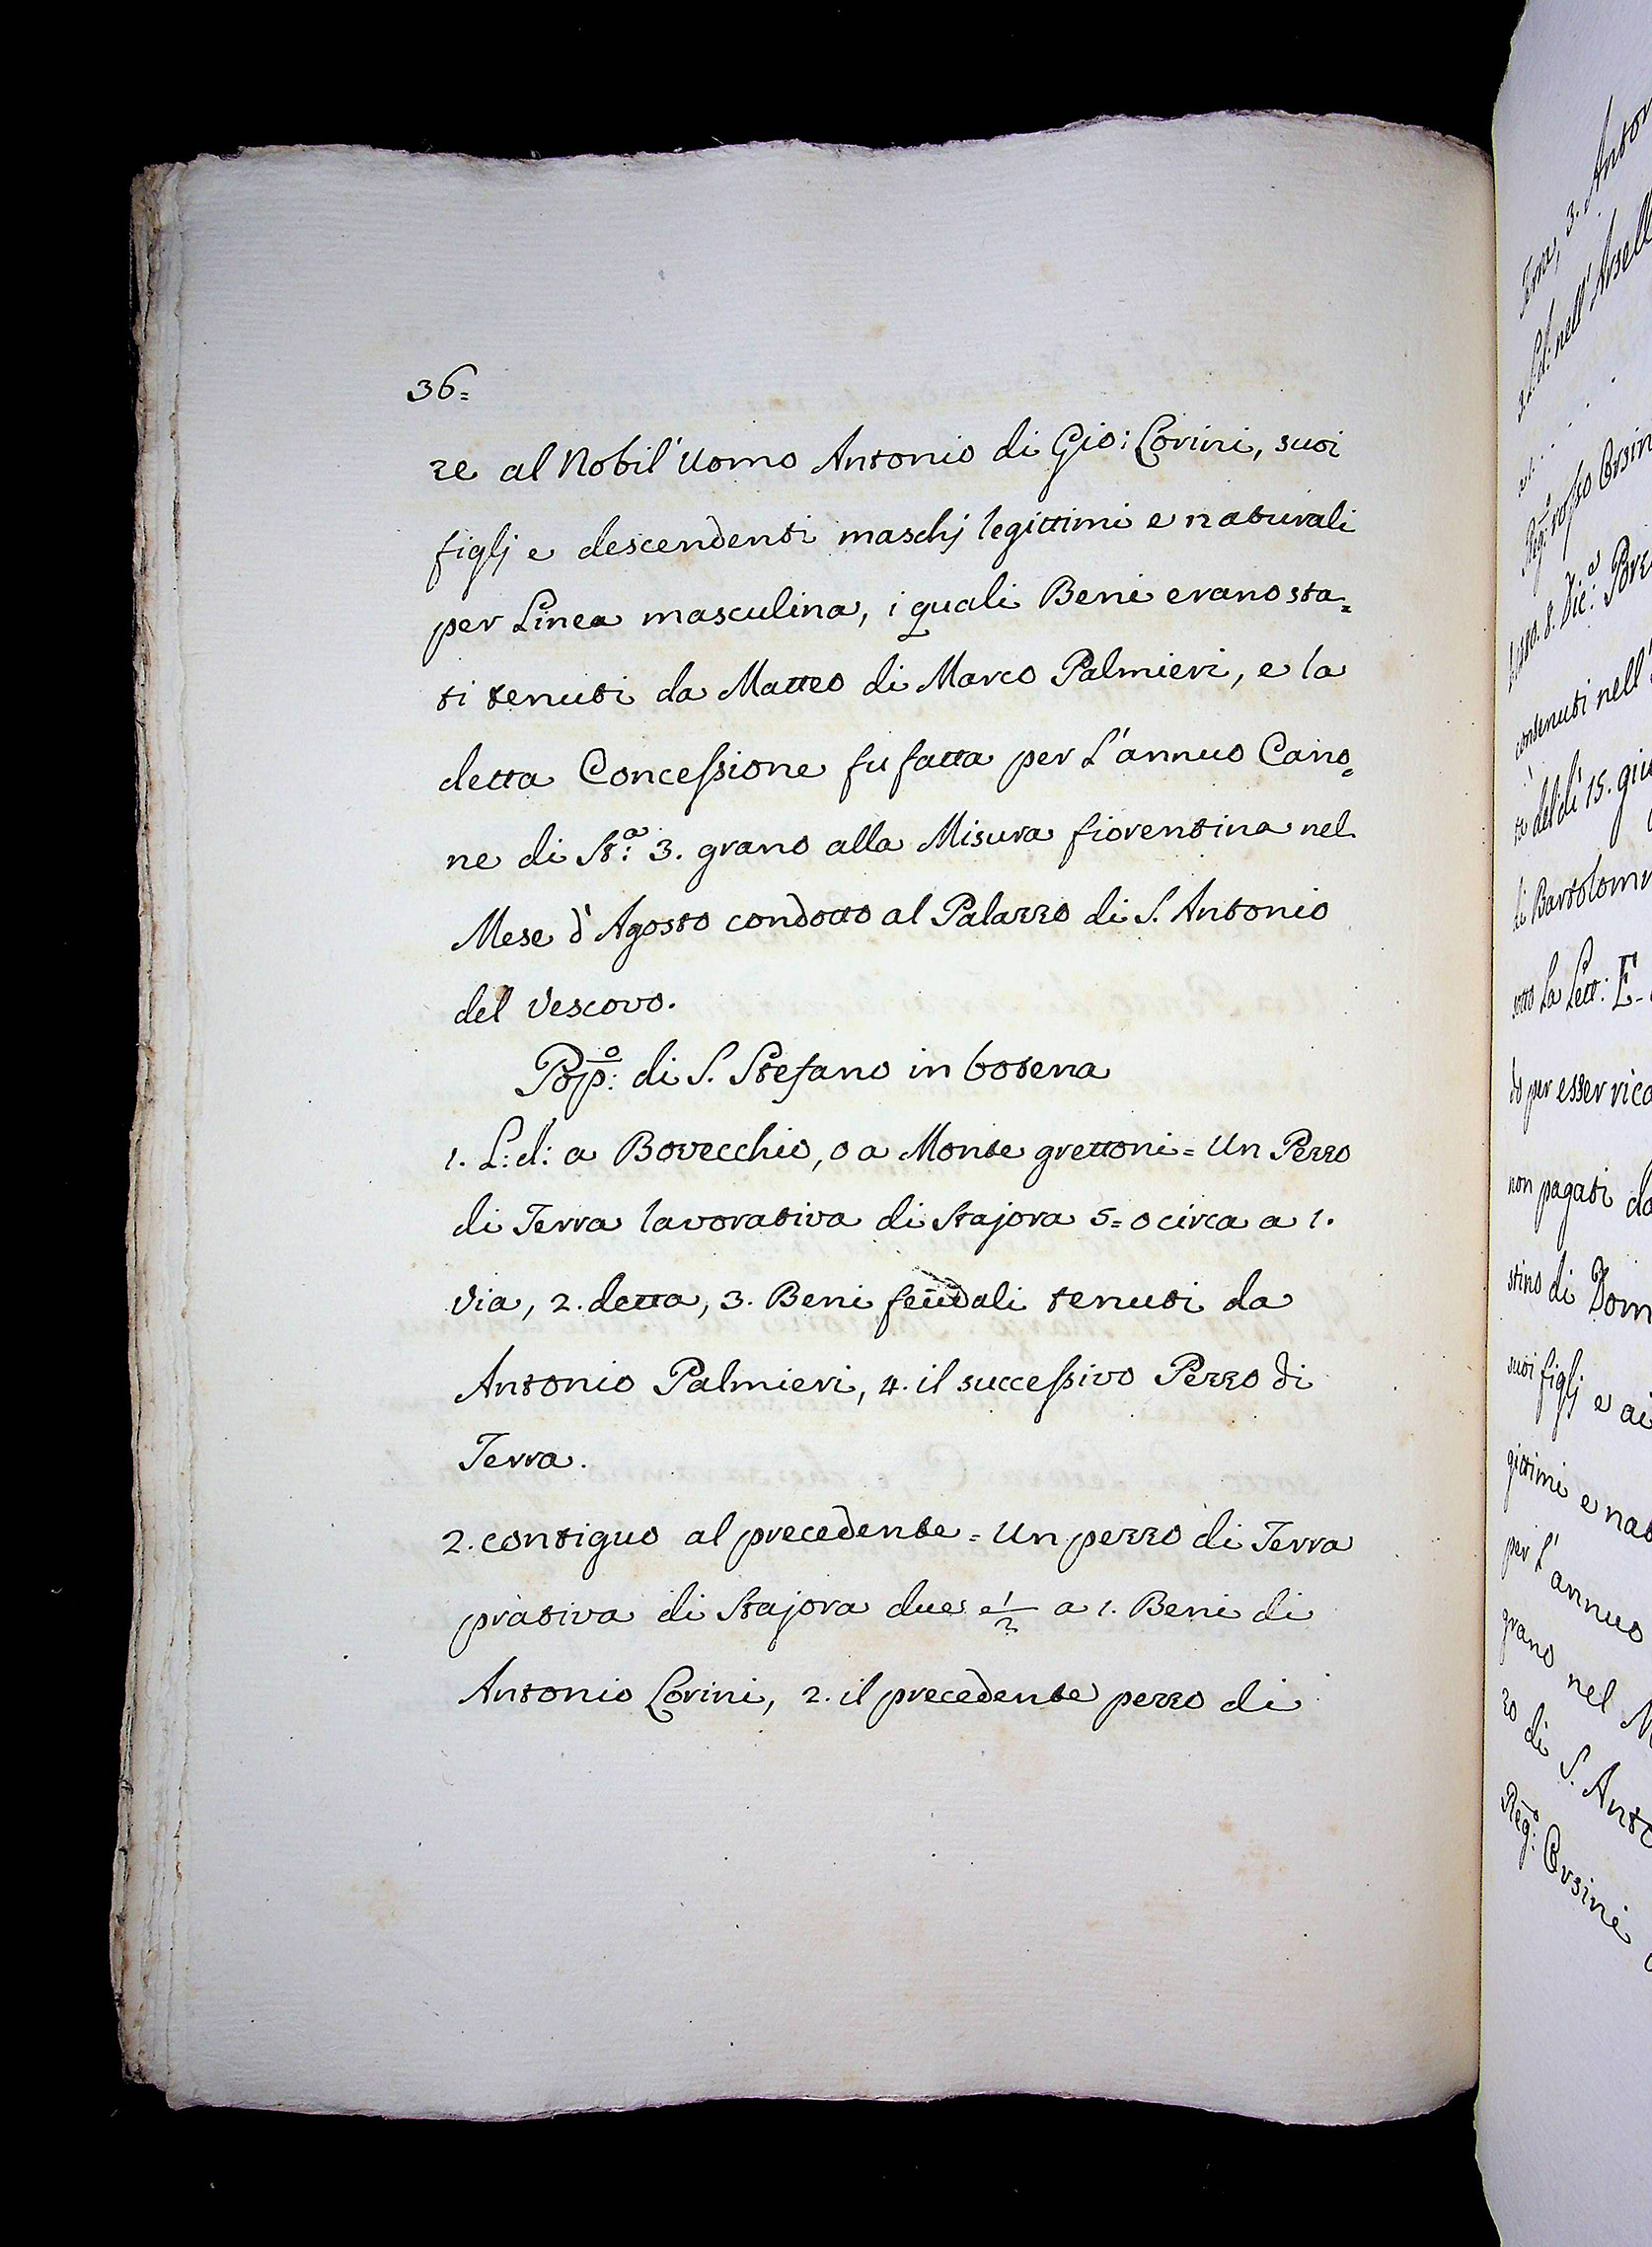 36=
re al Nobil' Uomo Antonio di Gio: Lorini, suoi
figlj e descendenti maschj legittimi e naturali
per Linea masculina, i quali Beni erano sta=
ti tenuti da Matteo di Marco Palmieri, e la
detta Concessione fu fatta per L'annuo Cano=
ne di St:ª 3. grano alla Misura fiorentina nel
Mese d'Agosto condotto al Palazzo di S. Antonio
del Vescovo.
Pop:º di S. Stefano in botena
1. L: d: a Bovecchio, o a Monte grettoni = Un Pezzo
di Terra lavorativa di Stajora 5= o circa a 1.
Via, 2. detta, 3. Beni feudali tenuti da
Antonio Palmieri, 4. il successivo Pezzo di
Terra.
2. contiguo al precedente = Un pezzo di Terra
prativa di Stajora due e 1/2 a 1. Beni di
Antonio Lorini, 2. il precedente pezzo di
Terra, 3.
L: d: nell'
Reg:º rosso Corsin
8. Dic:e
contenuti nell'
del dì 15. giu
di Bartolom
sotto La Lett: E.
do per esser rico
non pagati da
stino di Dom
suoi figlj e ai
gittimi e nat
per L'annuo
grano nel M
zo di S. Anto
Reg:º Corsini